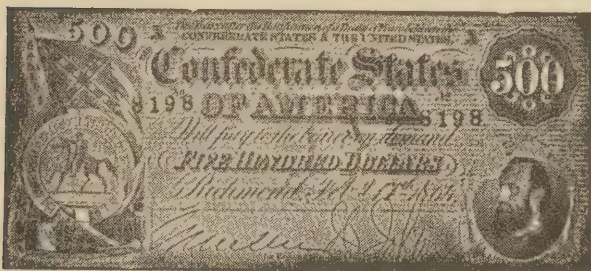 500
500
CONFEDERATE STATES & THE UNITED STATES
Confederate States
8198 OF AMERICA 8198
Will pay to the bearer on demand
FIVE HUNDRED DOLLARS
Richmond Feb. 17th 1864